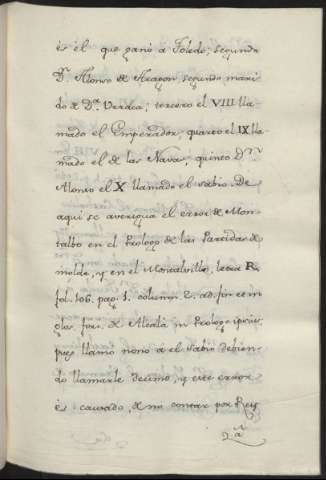 és el que ganó a Toledo, segundo
Dn. Alonso de Aragon segundo mari-
do de Da. Urraca; tercero el VIII lla-
mado el Emperador, quarto el IX lla-
mado el de las Navas, quinto Dn.
Alonso el X llamado el sabio. De
aqui se averigua el error de Mon-
talbo en el Prologo de las Partidas de
molde, y en el Montalvillo, letra R.
fol. 106. pag. 1. column. 2. ad fin et in
for. de Alcalá in Prologo
pues llamo nono á el Sabio debien-
do llamarle decimo, y este error
es causado, de no contar por Rey